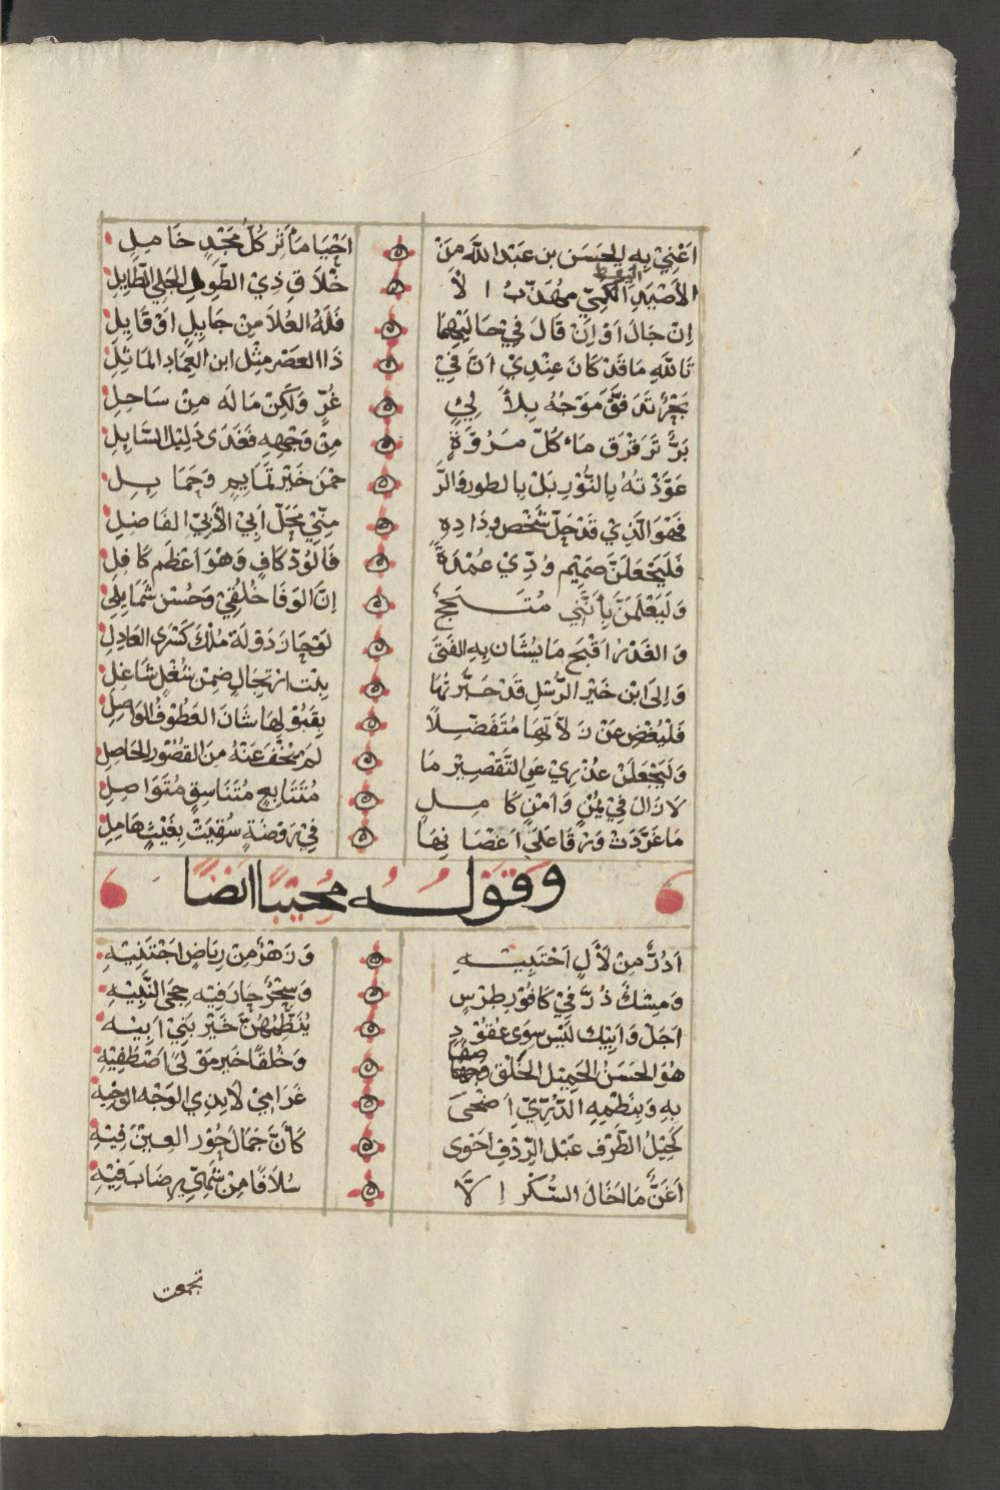 اَعْنِيْ بِهِ الحَسَن بن عَبْدِ اللَّه مَنْ اَحْيَا مَآثِر كُلّ مَجْدٍ خَامِلِ
الأَصْيَدِ اليقظ الكَمِيّ مهَذّبُ الأ خْلَاقِ ذِيْ الطَّوْلِ الجَلِي الطَّايِلِ
اِنْ جَالَ اَوْ اِنْ قَالَ فِيْ حَالَيْهِمَا فَلَهُ العُلَا مِنْ جَايِلٍ اَوْ قَايِلِ
تَاللَّهِ مَا قَدْ كَانَ عِنْدِيْ اَنَّ فِيْ ذَا العَصْر مِثْل ابن العِمَادِ الماثِلِ
بَحْرٌ تَدَفَّقَ مَوْجُهُ بِلآلِئٍ غُرٍّ وَلَكِنْ مَا لَه مِنْ سَاحِلِ
بَرٌّ تَرَقْرَق مَاء كُلّ مَرُوَّةٍ مِنْ وَجْهِهِ فَغَدَى دَلِيْل السَّايِلِ
عَوَّذْتُهُ بِالنُّوْرِ بَلْ بِالطور وَالرَّ حْمَن خَيْر تَمَايِمٍ وَحَمَايِلِ
فَهْوَ الَّذِيْ قَدْ حَلّ شَخْص وِدَادِهِ مِنِّيْ مَحَلّ اَبِيْ الأَبِيّ الفَاضِلِ
فَلَيَجْعَلَنَّ صَمِيْم وُدِّيْ عُمْدَةً فَالوُدّ كَافٍ وَهْوَ اَعْظَم كَافِلِ
وَلَيَعْلَمَنَّ بِأَنَّنِي مُتَبَجِّحٌ اِنَّ الوَفَا خُلُقِيْ وَحُسْن شَمَايِلِيْ
وَالغَدْرُ اَقْبَح مَا يُشَان بِهِ الفَتَى لَوْ حَازَ دَوْلَة مُلْك كَسْرَى العَادِلِ
وَاِلَى ابْن خَيْر الرُّسْلِ قَدْ حَبَّرْتُهَا بِنْت ارْتِجَالٍ ضِمْن شُغْلٍ شَاغِلِ
فَلْيُغْضِ عَنْ زَلاَّتِهَا مُتَفَضِّلاً بِقَبُوْلِهَا شَان العَطُوْفُ الوَاصِلِ
وَلَيَجْعَلَنْ عُذْرِيْ عَلَى التَّقْصِيْر مَا لَمْ يَخْفَ عَنْهُ مِنَ القُصُوْر الحَاصِلِ
لَا زَالَ فِيْ يُمْنٍ وَاَمْنٍ كَامِلِ مُتَتَابِعٍ مُتَنَاسِقٍ مُتَوَاصِلِ
مَا غَرَّدَتْ وَرْقَا عَلَى اَغْصَانِهَا فِيْ رَوْضَةٍ سُقِيَتْ بِغَيْثٍ هَامِلِ
وَقَوْلُه مُجِيْبًا اَيْضًا
اَدُرٌّ مِنْ لَأَلٍ اَجْتَبِيْهِ وَزَهْرٌ مِنْ رِيَاضٍ اجْتَنِيْهِ
وَمِسْكٌ ذُرَّ فِيْ كَافُوْر طِرْسٍ وَسِحْرٌ حَارَ فِيْه حِجَى النَّبِيْهِ
اَجَلْ وَاَبِيْك لَيْس سِوَى عُقُوْدٍ يُنَظِّمُهُنَّ خَيْر بَنِيْ اَبِيْهِ
هُوَ الحَسَنُ الجَمِيْل الخُلْق صفها وَخُلْقًا خَير مَوْلَىً اَصْطَفِيْهِ
بِهِ وَبِنَظْمِهِ الدُّرِّيّ اَضْحَى غَرَامِيْ لَا بِذِي الوَجْه الوَجِيْهِ
كَحِيْلُ الطَّرْف عَبْل الرِّدْفِ اَحْوَى كَأَنَّ جَمَال حُوْر العِيْنَ فِيْهِ
اَغَنُّ مَا اِخَال السُّكْر اِلَّا سُلَافًا مِنْ شَهِيِّ رِضَاب فِيْهِ